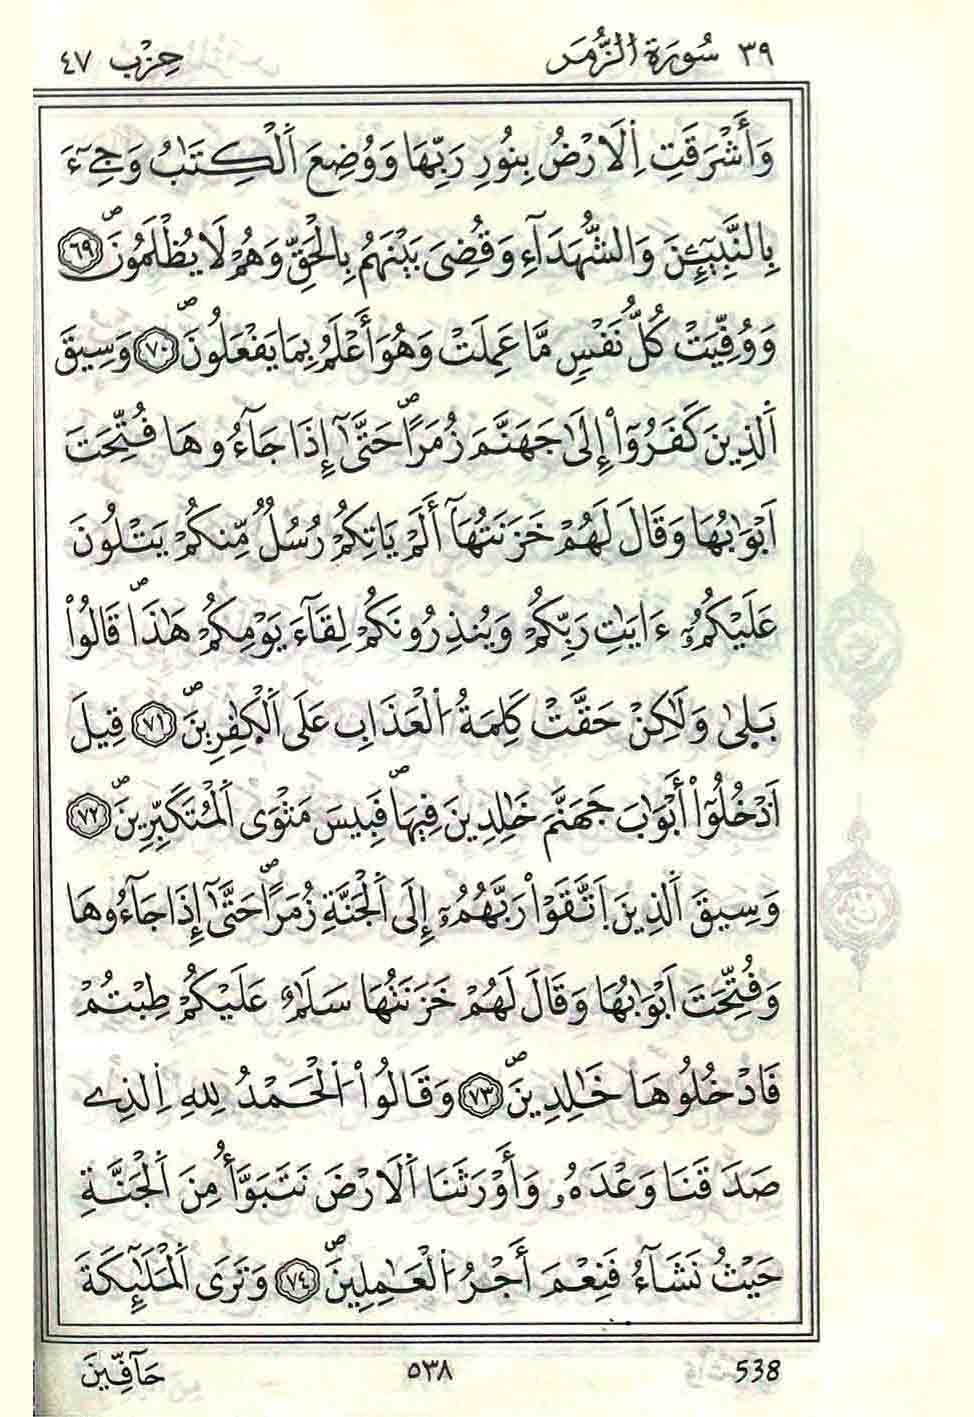 ٣٩ سُورَةُ الزُّمَرِ حِزْب ٤٧
وَأَشْرَقَتِ اِلَارْضُ بِنُورِ رَبِّهَا وَوُضِعَ اَلْكِتَٰبُ وَجِےٓءَ
بِالنَّبِيٓـِٕنَ وَالشُّهَدَآءِ وَقُضِىَ بَيْنَهُم بِالْحَقِّ وَهُمْ لَا يُظْلَمُونَۖ ٦٩
وَوُفِّيَتْ كُلُّ نَفْسٍ مَّا عَمِلَتْ وَهُوَ أَعْلَمُ بِمَا يَفْعَلُونَۖ ٧٠ وَسِيقَ
اَلذِينَ كَفَرُوٓاْ إِلَىٰ جَهَنَّمَ زُمَراًۖ حَتَّىٰٓ إِذَا جَآءُوهَا فُتِّحَتَ
اَبْوَٰبُهَا وَقَالَ لَهُمْ خَزَنَتُهَآ أَلَمْ يَاتِكُمْ رُسُلٌ مِّنكُمْ يَتْلُونَ
عَلَيْكُمُۥٓ ءَايَٰتِ رَبِّكُمْ وَيُنذِرُونَكُمْ لِقَآءَ يَوْمِكُمْ هَٰذَاۖ قَالُواْ
بَلَىٰ وَلَٰكِنْ حَقَّتْ كَلِمَةُ اُ۬لْعَذَابِ عَلَى اَلْكٰ۪فِرِينَۖ ٧١ قِيلَ
اَدْخُلُوٓاْ أَبْوَٰبَ جَهَنَّمَ خَٰلِدِينَ فِيهَاۖ فَبِيسَ مَثْوَى اَلْمُتَكَبِّرِينَۖ ٧٢
وَسِيقَ اَلذِينَ اَتَّقَوْاْ رَبَّهُمُۥٓ إِلَى اَلْجَنَّةِ زُمَراًۖ حَتَّىٰٓ إِذَا جَآءُوهَا
وَفُتِّحَتَ اَبْوَٰبُهَا وَقَالَ لَهُمْ خَزَنَتُهَا سَلَٰمٌ عَلَيْكُمْ طِبْتُمْ
فَادْخُلُوهَا خَٰلِدِينَۖ ٧٣ وَقَالُواْ اُ۬لْحَمْدُ لِلهِ اِلذِے
صَدَقَنَا وَعْدَهُۥ وَأَوْرَثَنَا اَلَارْضَ نَتَبَوَّأُ مِنَ اَلْجَنَّةِ
حَيْثُ نَشَآءُ فَنِعْمَ أَجْرُ اُ۬لْعَٰمِلِينَۖ ٧٤ وَتَرَى اَلْمَلَٰٓئِكَةَ
حَآفِّينَ ٥٣٨ 538